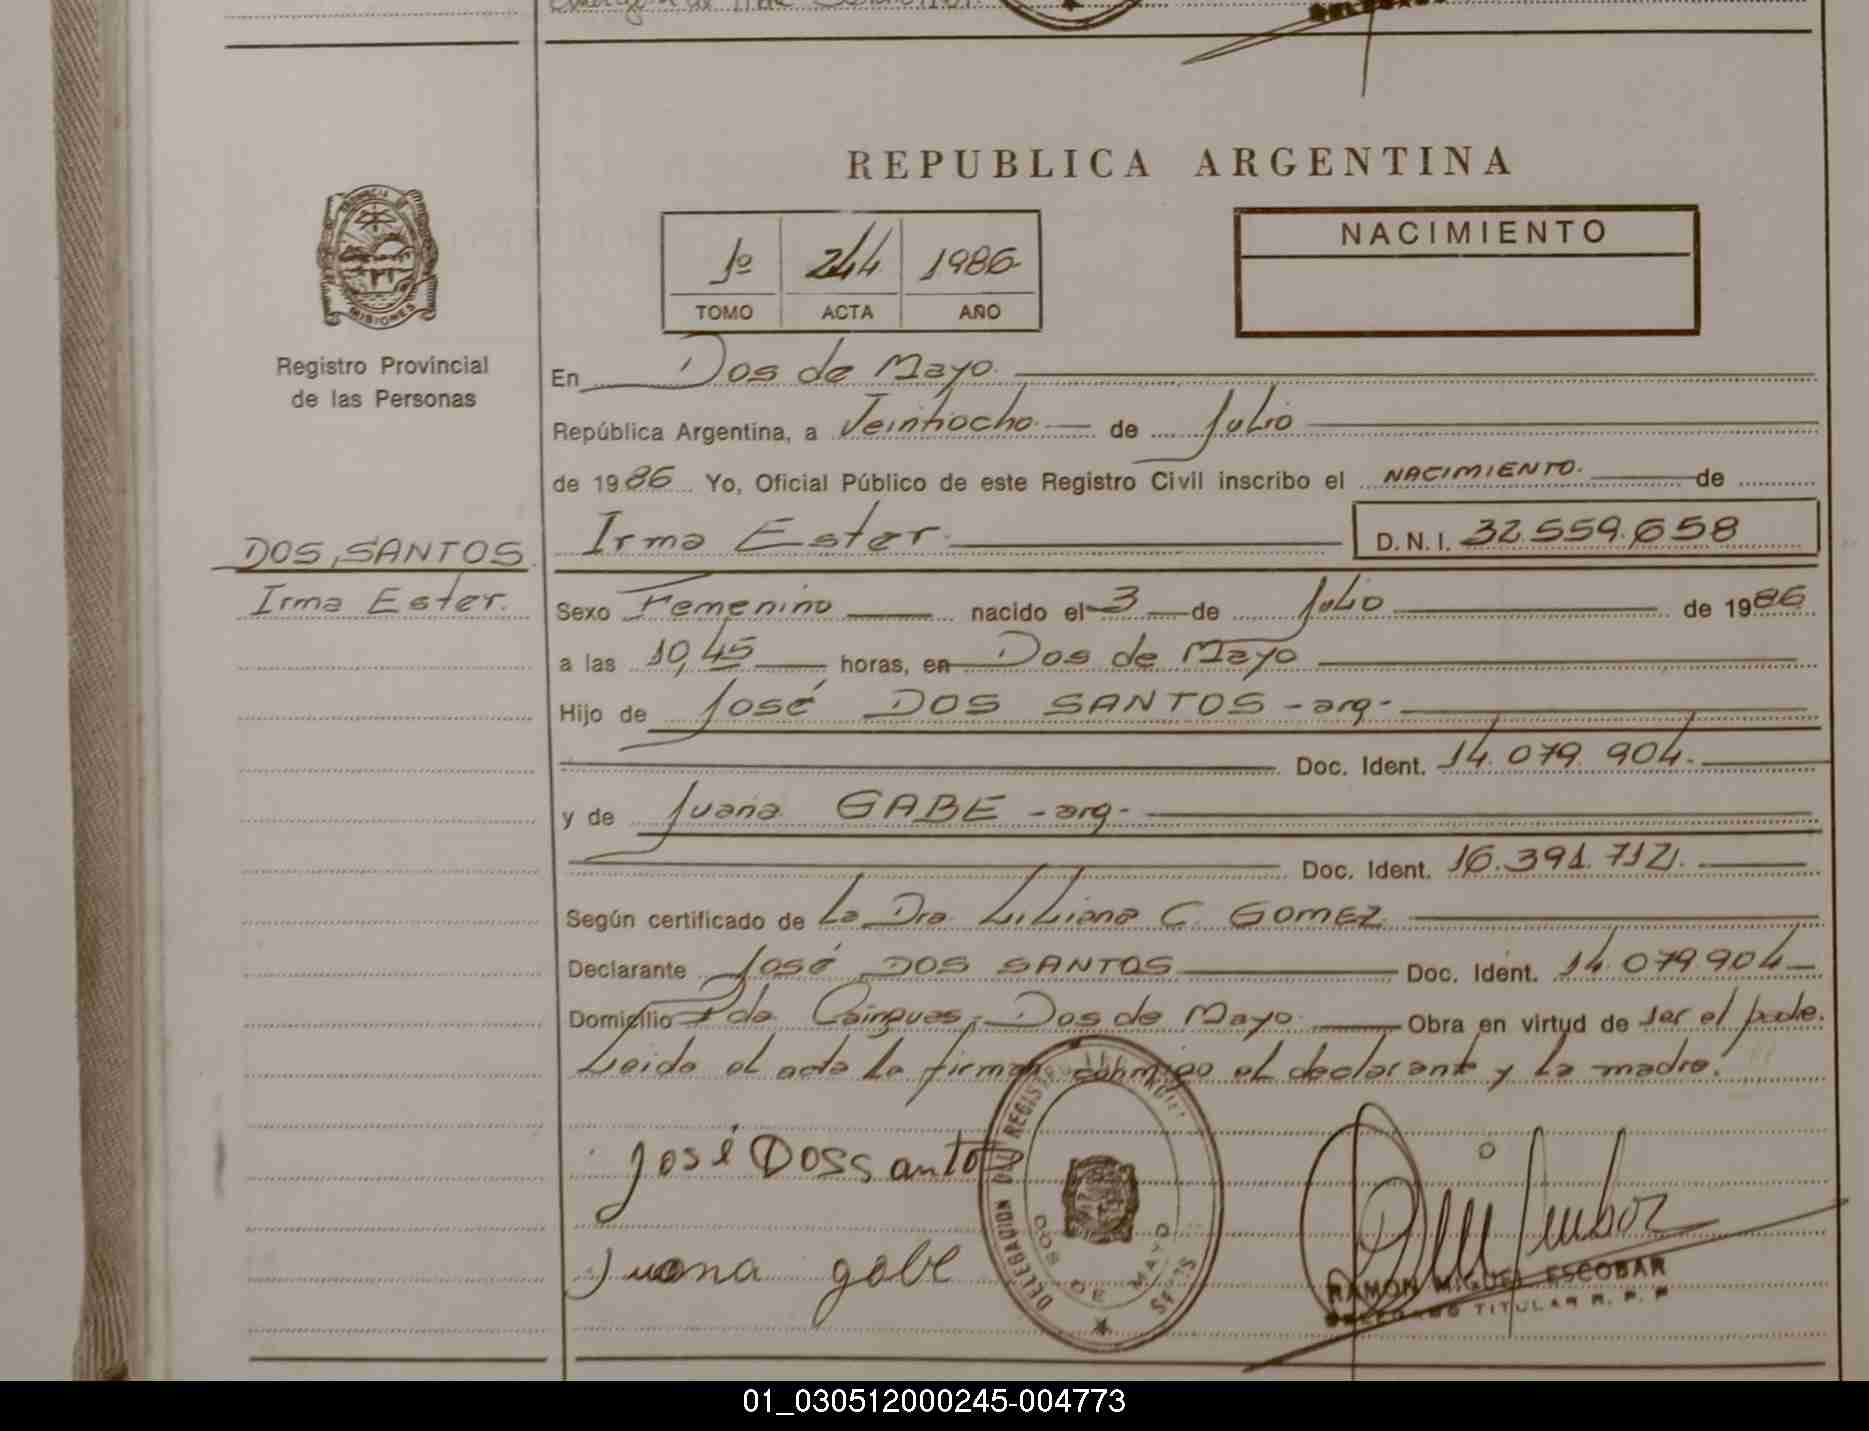 REPUBLICA ARGENTINA
PROVINCIA DE
MISIONES
Registro Provincial
de las Personas
1º 244 1986
TOMO ACTA AÑO
NACIMIENTO
En Dos de Mayo.
República Argentina, a Veintiocho de Julio
de 1986 Yo, Oficial Público de este Registro Civil inscribo el NACIMIENTO. de
DOS SANTOS
Irma Ester.
Irma Ester. D.N.I. 32.559.658
Sexo Femenino nacido el 3 de Julio de 1986
a las 10,45 horas, en Dos de Mayo
Hijo de José DOS SANTOS - arg -
Doc. Ident. 14.079.904.
y de Juana GABE - arg -
Doc. Ident. 16.391.712.
Según certificado de La Dra. Liliana C. GOMEZ
Declarante José DOS SANTOS Doc. Ident. 14.079.904
Domicilio Pda. Cainguas, Dos de Mayo Obra en virtud de ser el padre.
Leida el acta la firman conmigo el declarante y la madre.
José Dos santos
Juana gabe
DELEGACION DEL REGISTRO
DOS DE MAYO
RAMON MIGUEL ESCOBAR
DELEGADO TITULAR R. P. P.
01_030512000245-004773